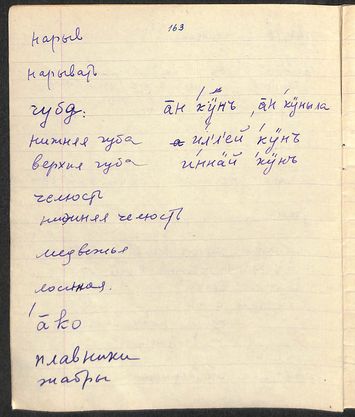 163
нарыв
нарывать
губа: а̄н кӱнъ, а̄н кӱныла
нижняя губа ил'л'ей кӱнъ
верхняя губа иннӓй кӱнъ
челюсть
нижняя челюсть
медвежья
лосиная.
а̄ко
плавники
жабры